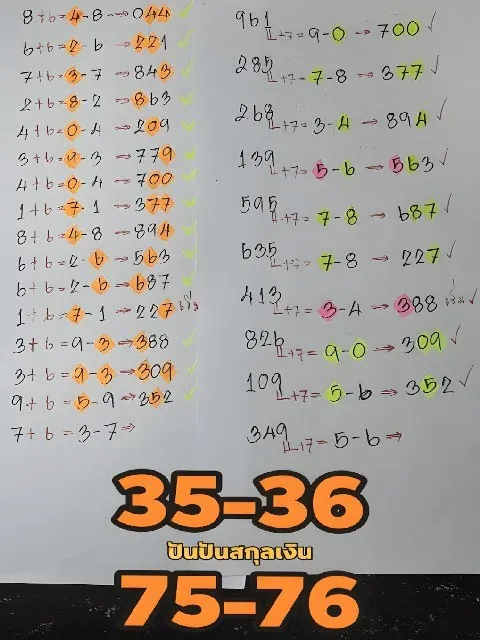 8+6=4-8→044
6+6=2-6→221
7+6=3-7→843
2+6=8-2→863
4+6=0-4→209
3+6=9-3→779
4+6=0-4→700
1+6=7-1→377
8+6=4-8→894
6+6=2-6→563
6+6=2-6→687
1+6=7-1→227
3+6=9-3→388
3+6=9-3→309
9+6=5-9→352
7+6=3-7→
961
+7=9-0→700
285
+7=7-8→377
268
+7=3-4→894
139
+7=5-6→563
595
+7=7-8→687
635
+7=7-8→227
413
+7=3-4→388
826
+7=9-0→309
109
+7=5-6→352
349
+7=5-6→
35-36
ปันปันสกุลเงิน
75-76